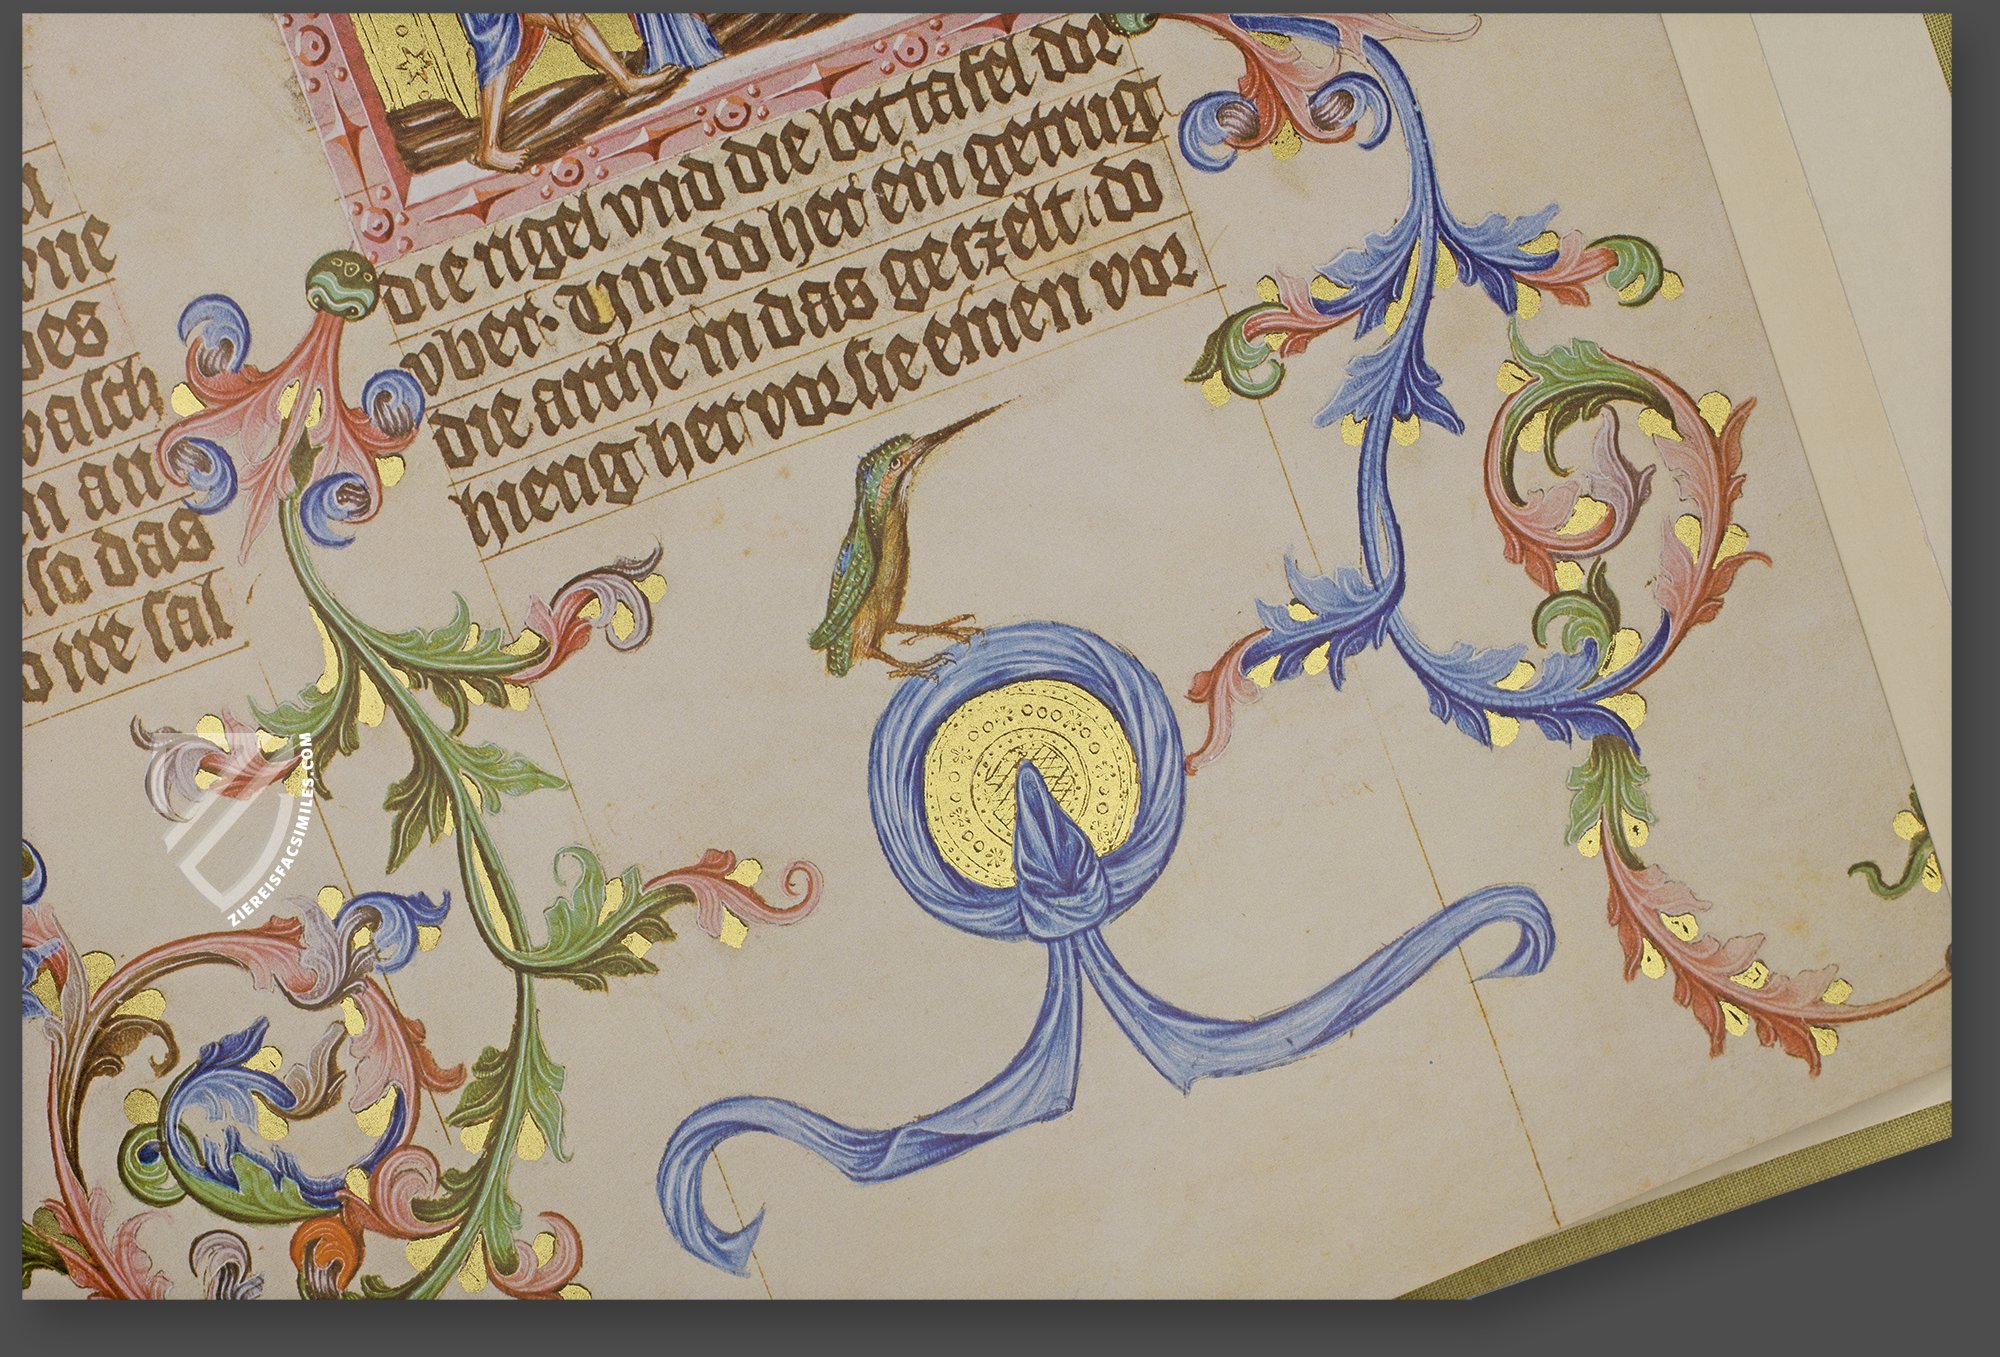 vne
des
wasch
n an
so das
d ire sal
die engel vnd die bet tafel dor
vber· Vnd do her ein getrug
die arche in das geczelt do
hieng her vor sie einen vor
ZIEREISFACSIMILES.COM